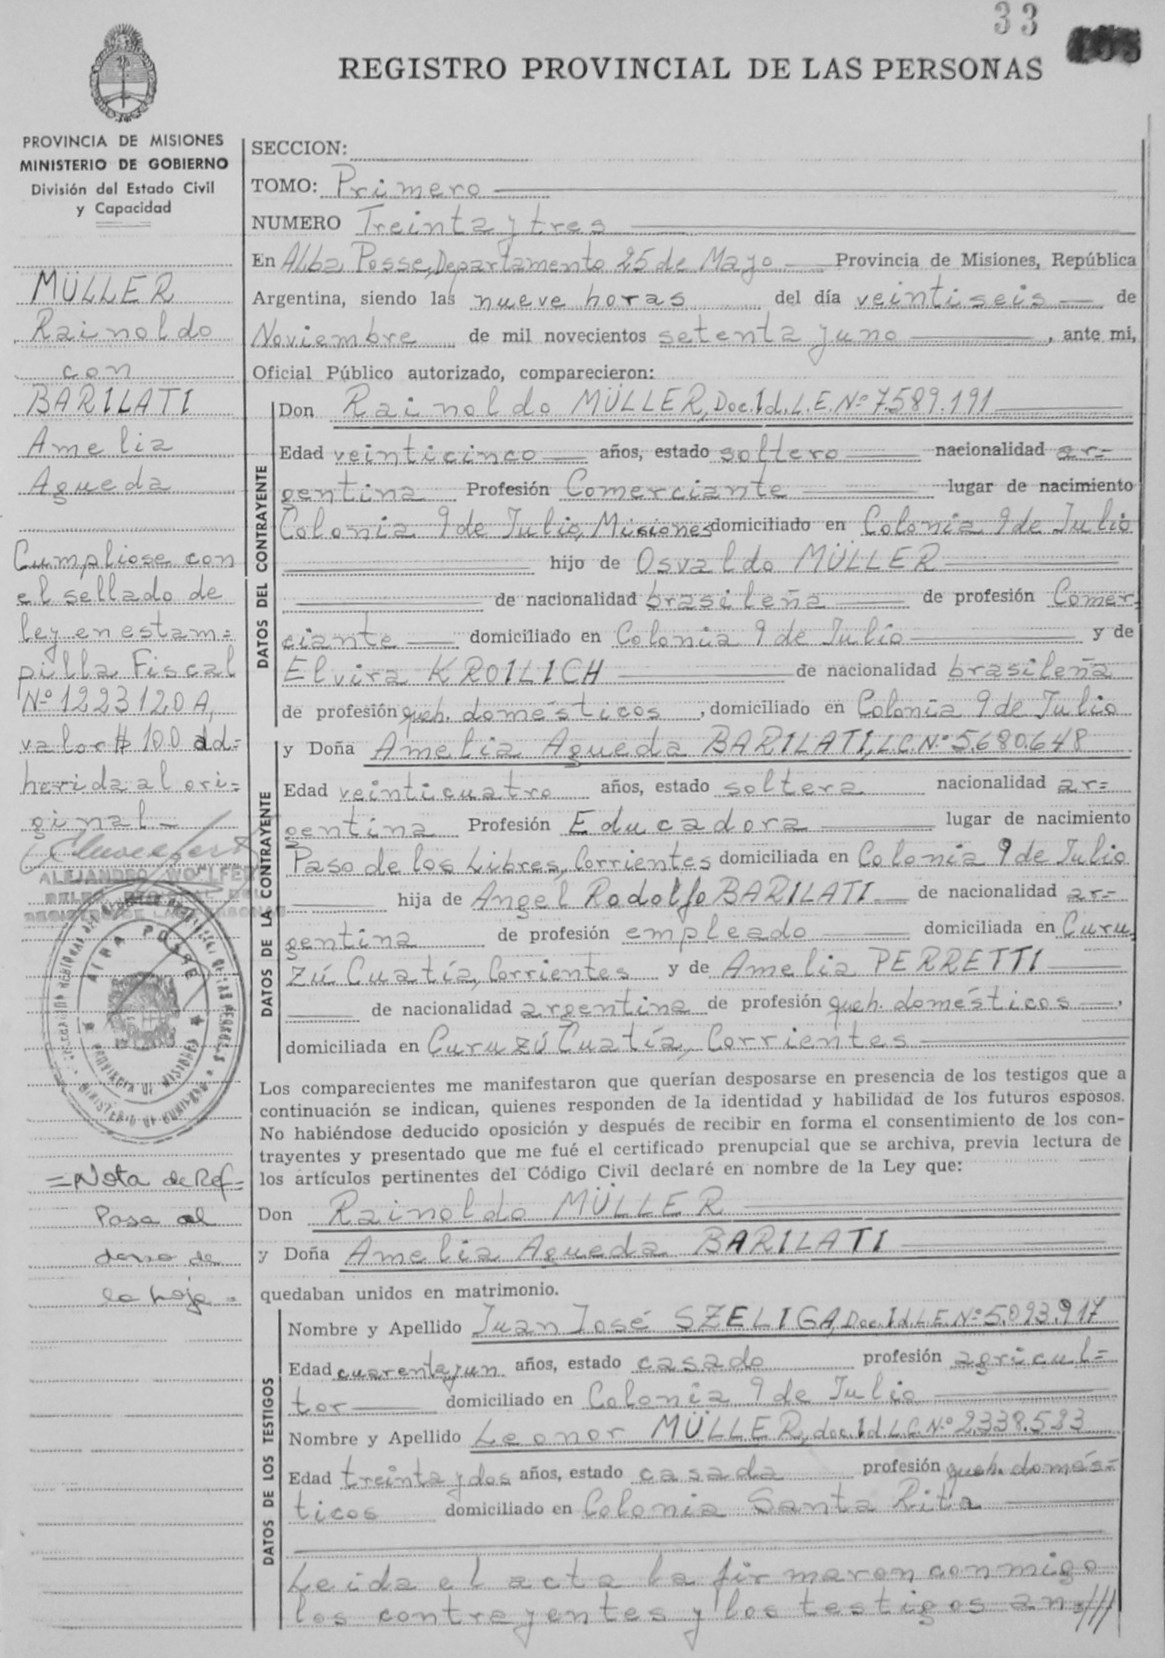 33
REGISTRO PROVINCIAL DE LAS PERSONAS
PROVINCIA DE MISIONES
MINISTERIO DE GOBIERNO
División del Estado Civil
y Capacidad
MÜLLER
Rainoldo
con
BARILATI
Amelia
Agueda
Cumpliose con
el sellado de
ley en estam=
pilla Fiscal
Nº 1223120A,
valor $ 100 ad=
herida al ori=
ginal -
ALEJANDRO
ALBA POSSE
PROVINCIA DE MISIONES
MINISTERIO DE GOBIERNO
= Nota de Ref=
Pasa al
dorso de
la hoja =
SECCION:
TOMO: Primero
NUMERO Treinta y tres
En Alba Posse, Departamento 25 de Mayo Provincia de Misiones, República
Argentina, siendo las nueve horas del día veintiseis de
Noviembre de mil novecientos setenta y uno , ante mi,
Oficial Público autorizado, comparecieron:
DATOS DEL CONTRAYENTE
Don Rainoldo MÜLLER, Doc. Id. L.E. Nº 7.589.191
Edad veinticinco años, estado soltero nacionalidad ar=
gentina Profesión Comerciante lugar de nacimiento
Colonia 9 de Julio, Misiones domiciliado en Colonia 9 de Julio
hijo de Osvaldo MÜLLER
de nacionalidad brasileña de profesión Comer
ciante domiciliado en Colonia 9 de Julio y de
Elvira KROILICH de nacionalidad brasileña
de profesión queh. domésticos , domiciliado en Colonia 9 de Julio
DATOS DE LA CONTRAYENTE
y Doña Amelia Agueda BARILATI, L.C. Nº 5.680.648
Edad veinticuatro años, estado soltera nacionalidad ar=
gentina Profesión Educadora lugar de nacimiento
Paso de los Libres, Corrientes domiciliada en Colonia 9 de Julio
hija de Angel Rodolfo BARILATI de nacionalidad ar=
gentina de profesión empleado domiciliada en Curu
zú Cuatía, Corrientes y de Amelia PERRETTI
de nacionalidad argentina de profesión queh. domésticos ,
domiciliada en Curuzú Cuatía, Corrientes
Los comparecientes me manifestaron que querían desposarse en presencia de los testigos que a
continuación se indican, quienes responden de la identidad y habilidad de los futuros esposos.
No habiéndose deducido oposición y después de recibir en forma el consentimiento de los con-
trayentes y presentado que me fué el certificado prenupcial que se archiva, previa lectura de
los artículos pertinentes del Código Civil declaré en nombre de la Ley que:
Don Rainoldo MÜLLER
y Doña Amelia Agueda BARILATI
quedaban unidos en matrimonio.
DATOS DE LOS TESTIGOS
Nombre y Apellido Juan José SZELIGA, Doc. Id. L.E. Nº 5.093.917
Edad cuarenta y un años, estado casado profesión agricul=
tor domiciliado en Colonia 9 de Julio
Nombre y Apellido Leonor MÜLLER, doc. Id L.C. Nº 2.338.523
Edad treinta y dos años, estado casada profesión queh. domés=
ticos domiciliado en Colonia Santa Rita
Leida el acta la firmaron conmigo
los contrayentes y los testigos an=///